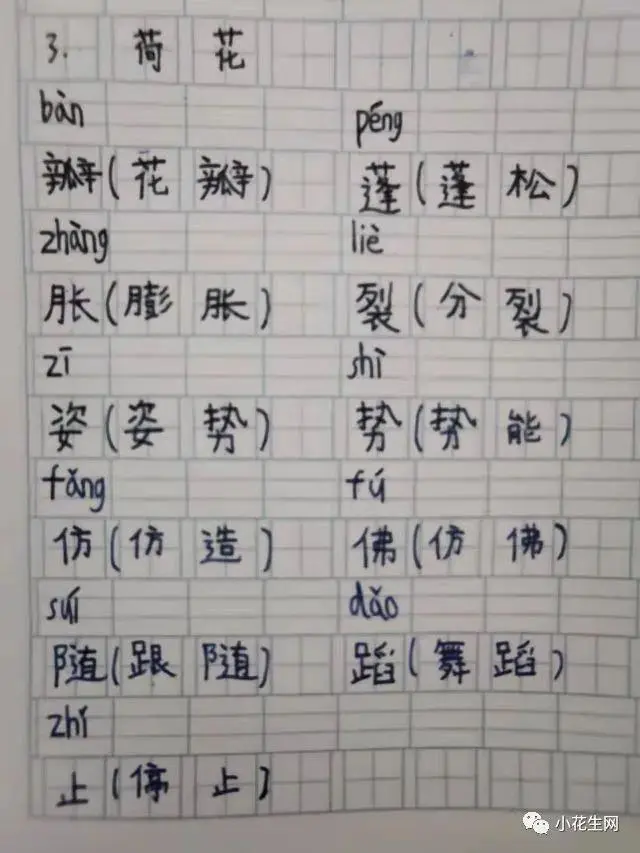 3. 荷花
bàn péng
瓣(花瓣) 蓬(蓬松)
zhàng liè
胀(膨胀) 裂(分裂)
zī shì
姿(姿势) 势(势能)
fǎng fú
仿(仿造) 佛(仿佛)
suí dǎo
随(跟随) 蹈(舞蹈)
zhǐ
止(停止)
小花生网